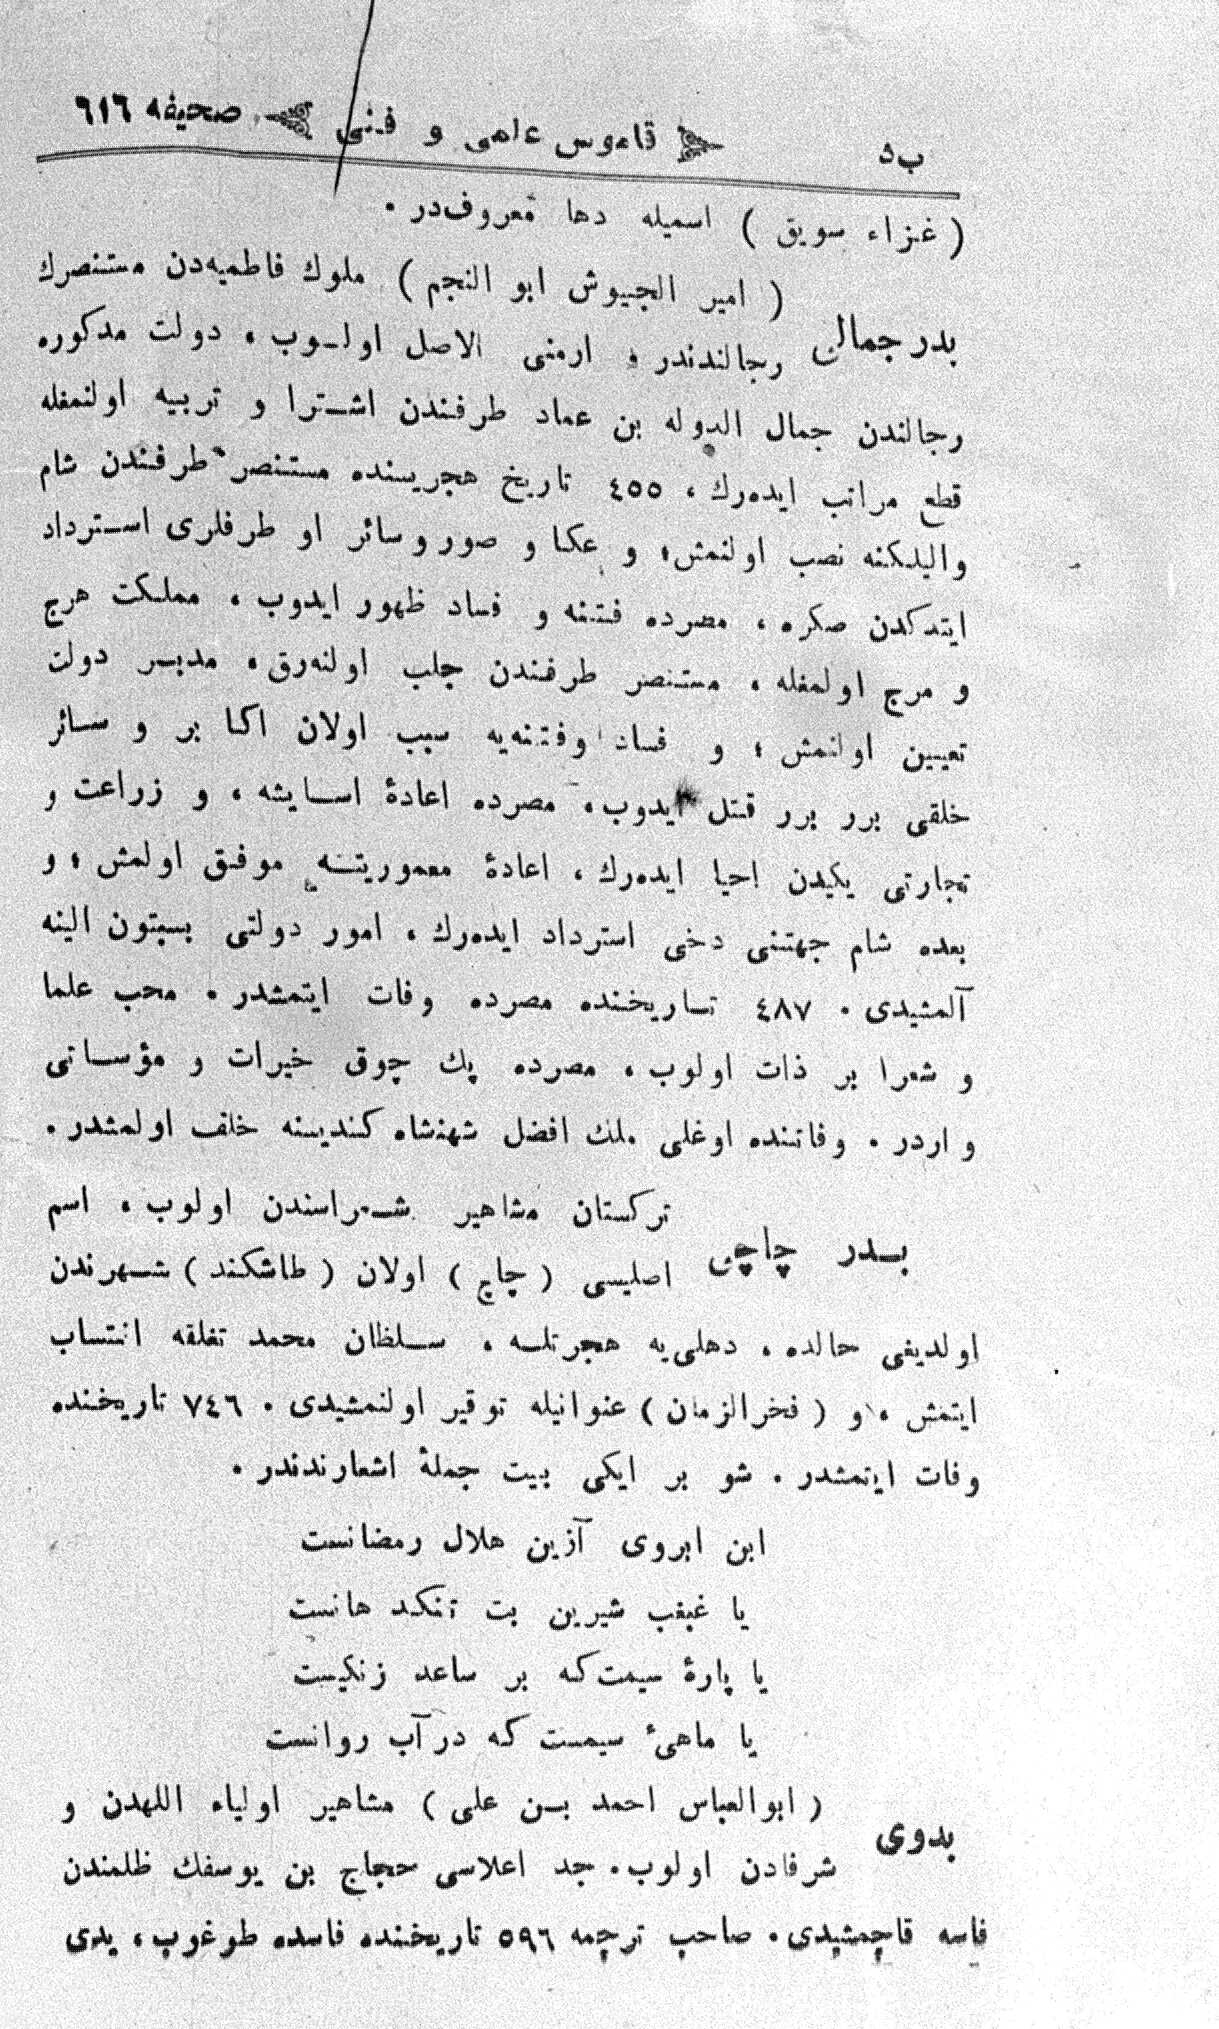 ب‌د ❧ قاموس علمی و فنی ❧ صحیفه ٦١٦
( غزاء سویق ) اسمیله دها معروف‌در ٠
بدر جمالی ( امیر الجیوش ابو النجم ) ملوك فاطمیه‌دن مستنصرك
رجالندندر و ارمنی الاصل اولـوب ، دولت مدکوره
رجالندن جمال الدوله بن عماد طرفندن اشـترا و تربیه اولنمغله
قطع مراتب ایده‌رك ، ٤٥٥ تاریخ هجریسنده مستنصر طرفندن شام
والیلکنه نصب اولنمش؛ و عکا و صور و سائر او طرفلری اسـترداد
ایتدکدن صکره ، مصرده فتنه و فساد ظهور ایدوب ، مملکت هرج
و مرج اولمغله ، مستنصر طرفندن جلب اولنه‌رق ، مدبـر دولت
تعیین اولنمش ؛ و فساد وفتنه‌یه سبب اولان اکا بر و سـائر
خلقی برر برر قتل ایدوب ، مصرده اعادۀ اسـایشه ، و زراعت و
تجارتی یکیدن احیا ایده‌رك ، اعادۀ معموریتـه موفق اولمش ؛ و
بعده شام جهتنی دخی استرداد ایده‌رك ، امور دولتی بسبتون الینه
آلمشیدی ٠ ٤٨٧ تـاریخنده مصرده وفات ایتمشدر ٠ محب علما
و شعرا بر ذات اولوب ، مصرده پك چوق خیرات و مؤسـاتی
واردر ٠ وفاتنده اوغلی ملك افضل شهنشاه کندیسنه خلف اولمشدر ٠
بـدر چاچی ترکستان مشاهیر شـعراسندن اولوب ، اسم
اصلیسی ( چاچ ) اولان ( طاشکند ) شـهرندن
اولدیغی حالده ، دهلی‌یه هجرتلـه ، سـلطان محمد تغلقه انتساب
ایتمش ، و ( فخرالزمان ) عنوانیله توقیر اولنمشیدی ٠ ٧٤٦ تاریخنده
وفات ایتمشدر ٠ شو بر ایکی بیت جملۀ اشعارندندر ٠
این ابروی آزین هلال رمضانست
یا غبغب شیرین بت تنکد هانست
یا پارۀ سیمت‌که بر ساعد زنکیست
یا ماهیٔ سیمست که درآب روانست
بدوی ( ابوالعباس احمد بـن علی ) مشاهیر اولیاء اللهدن و
شرفادن اولوب ٠ جد اعلاسی حجاج بن یوسفك ظلمندن
فاسه قاچمشیدی ٠ صاحب ترجمه ٥٩٦ تاریخنده فاسده طوغوب ، یدی